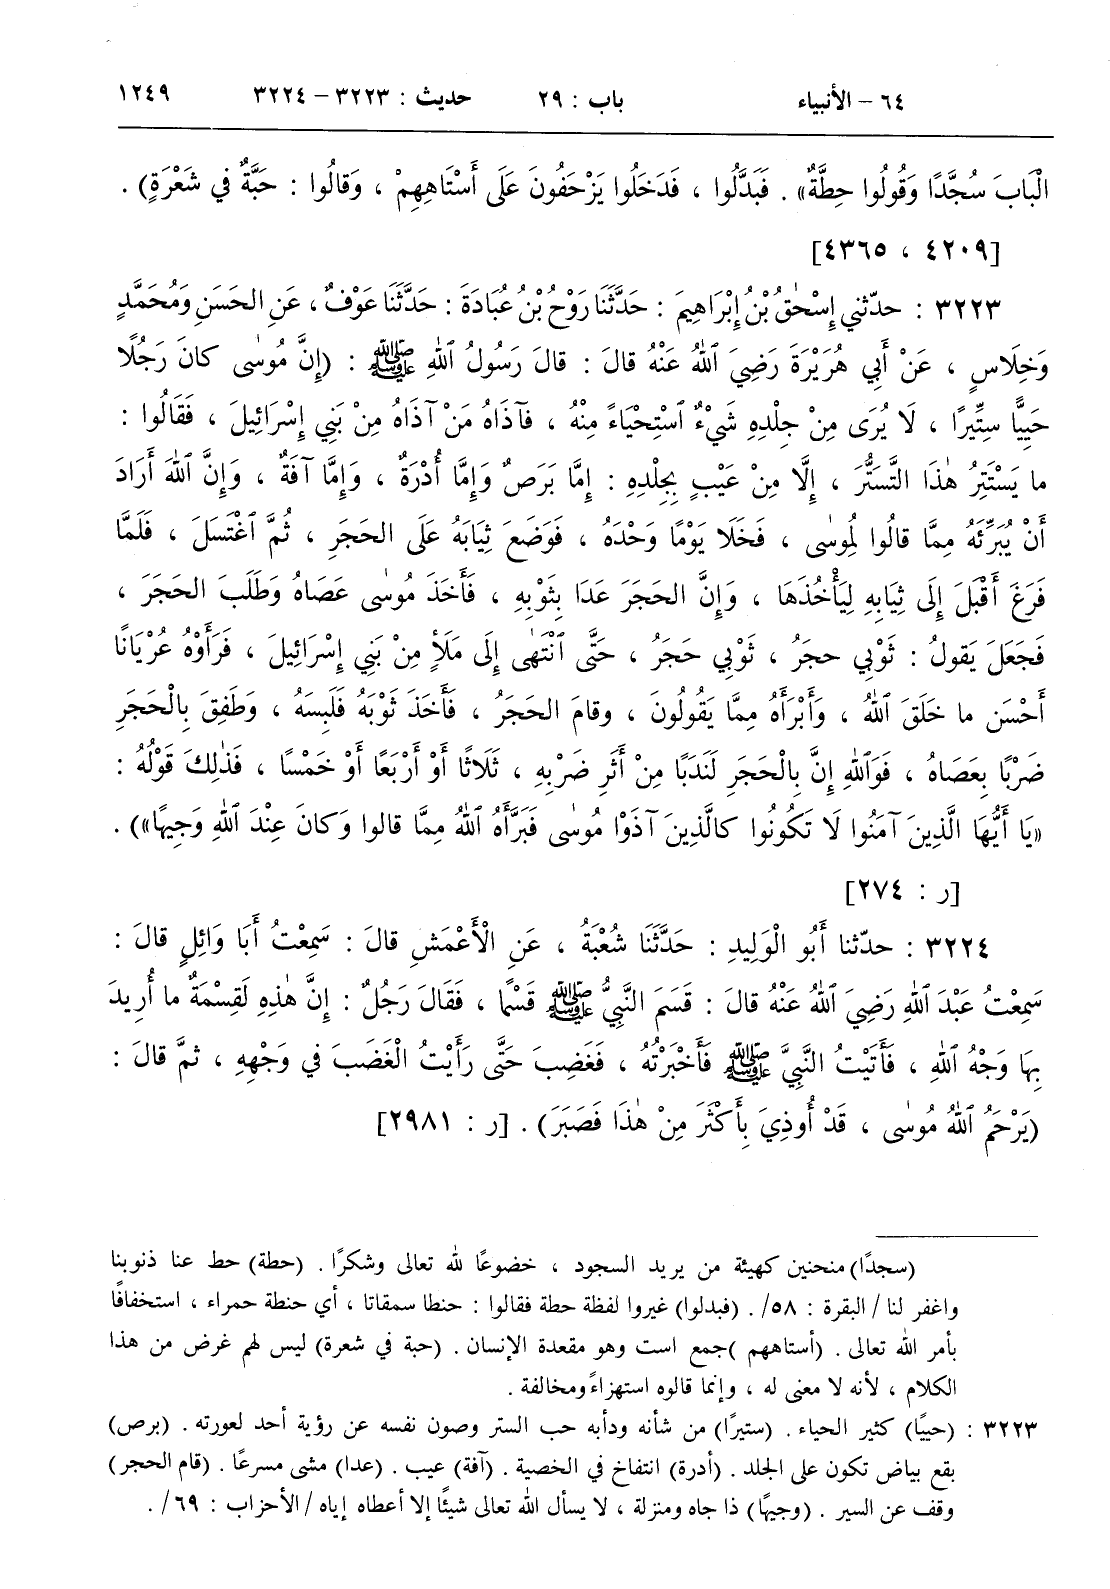 ٦٤ – الأنبياء باب : ٢٩ حديث : ٣٢٢٣ – ٣٢٢٤ ١٢٤٩
الْبَابَ سُجَّدًا وَقُولُوا حِطَّةٌ» . فَبَدَّلُوا ، فَدَخَلُوا يَزْحَفُونَ عَلَى أَسْتَاهِهِمْ ، وَقَالُوا : حَبَّةٌ في شَعْرَةٍ) .
[٤٢٠٩ ، ٤٣٦٥]
٣٢٢٣ : حدّثني إِسْحٰقُ بْنُ إِبْرَاهِيمَ : حَدَّثَنَا رَوْحُ بْنُ عُبَادَةَ : حَدَّثَنَا عَوْفٌ ، عَنِ الحَسَنِ وَمُحَمَّدٍ
وَخِلَاسٍ ، عَنْ أَبِي هُرَيْرَةَ رَضِيَ ٱللهُ عَنْهُ قالَ : قالَ رَسُولُ ٱللهِ ﷺ : (إِنَّ مُوسٰى كانَ رَجُلًا
حَيِيًّا سِتِّيرًا ، لَا يُرَى مِنْ جِلْدِهِ شَيْءٌ ٱسْتِحْيَاءً مِنْهُ ، فَآذَاهُ مَنْ آذَاهُ مِنْ بَنِي إِسْرَائِيلَ ، فَقَالُوا :
ما يَسْتَتِرُ هٰذَا التَّسَتُّرَ ، إِلَّا مِنْ عَيْبٍ بِجِلْدِهِ : إِمَّا بَرَصٌ وَإِمَّا أُدْرَةٌ ، وَإِمَّا آفَةٌ ، وَإِنَّ ٱللهَ أَرَادَ
أَنْ يُبَرِّئَهُ مِمَّا قالُوا لِمُوسٰى ، فَخَلَا يَوْمًا وَحْدَهُ ، فَوَضَعَ ثِيَابَهُ عَلَى الحَجَرِ ، ثُمَّ ٱغْتَسَلَ ، فَلَمَّا
فَرَغَ أَقْبَلَ إِلَى ثِيَابِهِ لِيَأْخُذَهَا ، وَإِنَّ الحَجَرَ عَدَا بِثَوْبِهِ ، فَأَخَذَ مُوسٰى عَصَاهُ وَطَلَبَ الحَجَرَ ،
فَجَعَلَ يَقُولُ : ثَوْبِي حجَرُ ، ثَوْبِي حَجَرُ ، حَتَّى ٱنْتَهٰى إِلَى مَلَأٍ مِنْ بَنِي إِسْرَائِيلَ ، فَرَأَوْهُ عُرْيَانًا
أَحْسَنَ ما خَلَقَ ٱللهُ ، وَأَبْرَأَهُ مِمَّا يَقُولُونَ ، وقامَ الحَجَرُ ، فَأَخَذَ ثَوْبَهُ فَلَبِسَهُ ، وَطَفِقَ بِالْحَجَرِ
ضَرْبًا بِعَصَاهُ ، فَوَٱللهِ إِنَّ بِالْحَجَرِ لَنَدَبًا مِنْ أَثَرِ ضَرْبِهِ ، ثَلَاثًا أَوْ أَرْبَعًا أَوْ خَمْسًا ، فَذٰلِكَ قَوْلُهُ :
«يَا أَيُّهَا الَّذِينَ آمَنُوا لَا تَكُونُوا كالَّذِينَ آذَوْا مُوسٰى فَبَرَّأَهُ ٱللهُ مِمَّا قالوا وَكانَ عِنْدَ ٱللهِ وَجِيهًا») .
[ر : ٢٧٤]
٣٢٢٤ : حدّثنا أَبُو الْوَلِيدِ : حَدَّثَنَا شُعْبَةُ ، عَنِ الْأَعْمَشِ قالَ : سَمِعْتُ أَبَا وَائِلٍ قالَ :
سَمِعْتُ عَبْدَ ٱللهِ رَضِيَ ٱللهُ عَنْهُ قالَ : قَسَمَ النَّبِيُّ ﷺ قَسْمًا ، فَقَالَ رَجُلٌ : إِنَّ هٰذِهِ لَقِسْمَةٌ ما أُرِيدَ
بِهَا وَجْهُ ٱللهِ ، فَأَتَيْتُ النَّبِيَّ ﷺ فَأَخْبَرْتُهُ ، فَغَضِبَ حَتَّى رَأَيْتُ الْغَضَبَ في وَجْهِهِ ، ثمَّ قالَ :
(يَرْحَمُ ٱللهُ مُوسٰى ، قَدْ أُوذِيَ بِأَكْثَرَ مِنْ هٰذَا فَصَبَرَ) . [ر : ٢٩٨١]
(سجدًا) منحنين كهيئة من يريد السجود ، خضوعًا لله تعالى وشكرًا . (حطة) حط عنا ذنوبنا
واغفر لنا / البقرة : ٥٨/ . (فبدلوا) غيروا لفظة حطة فقالوا : حنطا سمقاتا ، أي حنطة حمراء ، استخفافًا
بأمر الله تعالى . (أستاههم )جمع است وهو مقعدة الإنسان . (حبة في شعرة) ليس لهم غرض من هذا
الكلام ، لأنه لا معنى له ، وإنما قالوه استهزاءً ومخالفة .
٣٢٢٣ : (حييًا) كثير الحياء . (ستيرًا) من شأنه ودأبه حب الستر وصون نفسه عن رؤية أحد لعورته . (برص)
بقع بياض تكون على الجلد . (أدرة) انتفاخ في الخصية . (آفة) عيب . (عدا) مشى مسرعًا . (قام الحجر)
وقف عن السير . (وجيهًا) ذا جاه ومنزلة ، لا يسأل الله تعالى شيئًا إلا أعطاه إياه / الأحزاب : ٦٩/ .